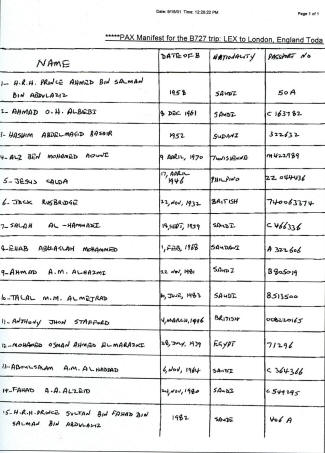 Date: 9/16/01 Time: 12:28:22 PM Page 1 of 1
*****PAX Manifest for the B727 trip: LEX to London, England Toda
NAME DATE OF B NATIONALITY PASSPORT NO
1- H.R.H. PRINCE AHMED BIN SALMAN
BIN ABDULAZIZ 1958 SAUDI 50A
2- AHMAD O.H. 8 DEC 1961 SAUDI C 163782
HASHIM ABDELMAGID 1952 SUDANI 322632
4- ALI BEN MOHAMED 9 APRIL, 1970
5- JESUS 17, APRIL 1946 ZZ 044436
6- JACK RUSBRIDGE 22, NOV, 1932 BRITISH 740063374
7- SALAH AL-HAMMADI 1959 SAUDI C 466336
8- EHAB MOHAMMED 1, FEB, 1968 A 322606
9- AHMAD A.M. 22 NOV, SAUDI B805019
10- TALAL M.M. 1983 SAUDI B513500
11- ANTHONY JHON STAFFORD 4, MARCH, BRITISH
12- MOHAMED OSMAN AHMED 28, JULY, 1979 EGYPT 71296
13- ABDULSALAM A.M. 6, NOV, 1964 SAUDI C 364366
14- FAHAD A.A. ALZEID NOV, 1980 SAUDI C 549295
15. H.R.H. PRINCE SULTAN BIN FAHAD BIN
SALMAN BIN ABDULAZIZ 1982 406 A